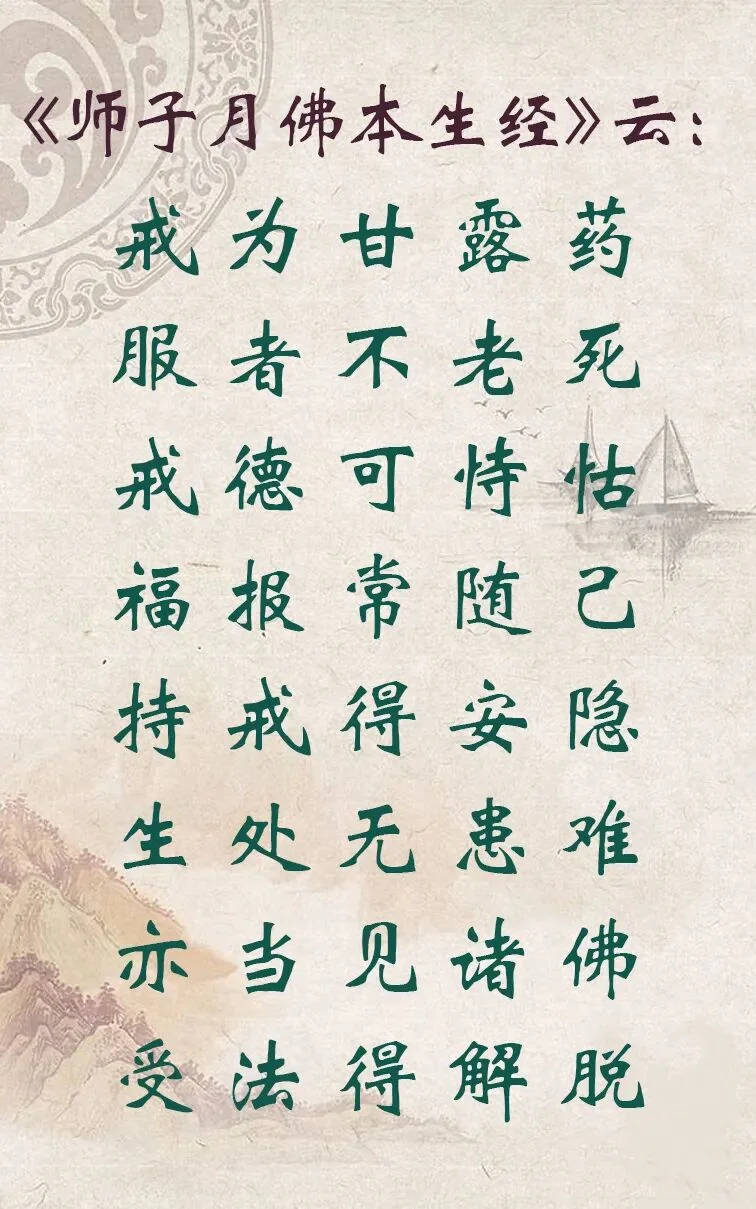 《师子月佛本生经》云：
戒为甘露药
服者不老死
戒德可恃怙
福报常随己
持戒得安隐
生处无患难
亦当见诸佛
受法得解脱